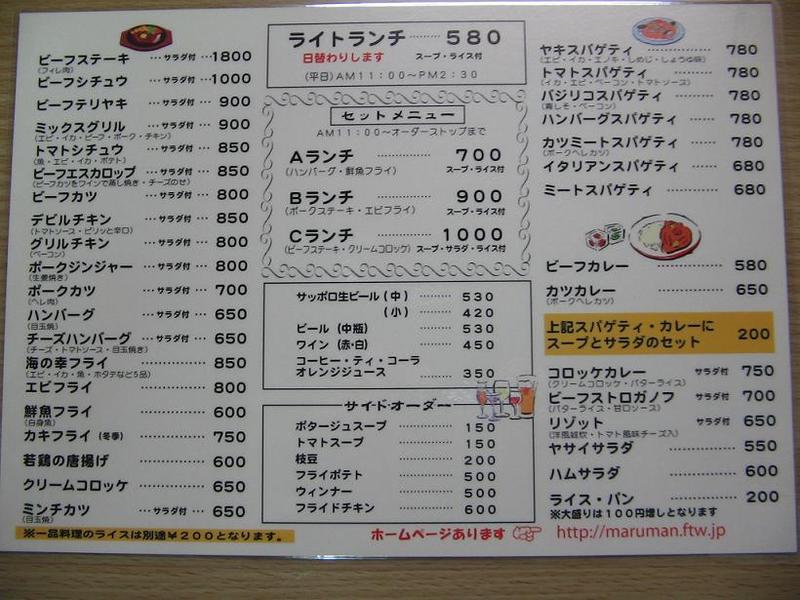 ビーフステーキ …サラダ付…1800
(フィレ肉)
ビーフシチュウ …サラダ付…1000
ビーフテリヤキ …サラダ付… 900
ミックスグリル …サラダ付… 900
(エビ・イカ・ビーフ・ポーク・チキン)
トマトシチュウ …サラダ付… 850
(魚・エビ・イカ・ポテト)
ビーフエスカロップ …サラダ付… 850
(ビーフカツをワインで蒸し焼き・チーズのせ)
ビーフカツ …サラダ付… 800
デビルチキン …サラダ付… 850
(トマトソース・ピリッと辛口)
グリルチキン …サラダ付… 800
(ベーコン)
ポークジンジャー …サラダ付… 800
(生姜焼き)
ポークカツ …サラダ付… 700
(ヘレ肉)
ハンバーグ …サラダ付… 650
(目玉焼)
チーズハンバーグ …サラダ付… 650
(チーズ・トマトソース・目玉焼き)
海の幸フライ ……………… 850
(エビ・イカ・魚・ホタテなど5品)
エビフライ ……………… 800
鮮魚フライ ……………… 600
(白身魚)
カキフライ (冬季) ………… 750
若鶏の唐揚げ ……………… 600
クリームコロッケ ………… 650
ミンチカツ …サラダ付… 650
(目玉焼)
※一品料理のライスは別途¥200となります。
ライトランチ …… 580
日替わりします スープ・ライス付
(平日)AM11:00~PM2:30
セットメニュー
AM11:00~オーダーストップまで
Aランチ ………… 700
(ハンバーグ・鮮魚フライ) スープ・ライス付
Bランチ ………… 900
(ポークステーキ・エビフライ) スープ・ライス付
Cランチ ………… 1000
(ビーフステーキ・クリームコロッケ) スープ・サラダ・ライス付
サッポロ生ビール(中) ……… 530
(小) ……… 420
ビール (中瓶) ……… 530
ワイン (赤・白) ……… 450
コーヒー・ティ・コーラ
オレンジジュース ……… 350
サイド・オーダー
ポタージュスープ ………… 150
トマトスープ ………… 150
枝豆 ………… 200
フライポテト ………… 500
ウィンナー ………… 500
フライドチキン ………… 600
ホームページあります
ヤキスパゲティ ………… 780
(エビ・イカ・エノキ・しめじ・しょうゆ味)
トマトスパゲティ ………… 780
(イカ・エビ・ベーコン・トマトソース)
バジリコスパゲティ ……… 780
(青しそ・ベーコン)
ハンバーグスパゲティ …… 780
カツミートスパゲティ …… 780
(ポークヘレカツ)
イタリアンスパゲティ …… 680
ミートスパゲティ ………… 680
ビーフカレー ………… 580
カツカレー ………… 650
(ポークヘレカツ)
上記スパゲティ・カレーに
スープとサラダのセット 200
コロッケカレー サラダ付 750
(クリームコロッケ・バターライス)
ビーフストロガノフ サラダ付 700
(バターライス・甘口ソース)
リゾット サラダ付 650
(洋風雑炊・トマト風味チーズ入)
ヤサイサラダ ………… 550
ハムサラダ ………… 600
ライス・パン ………… 200
※大盛りは100円増しとなります
http://maruman.ftw.jp